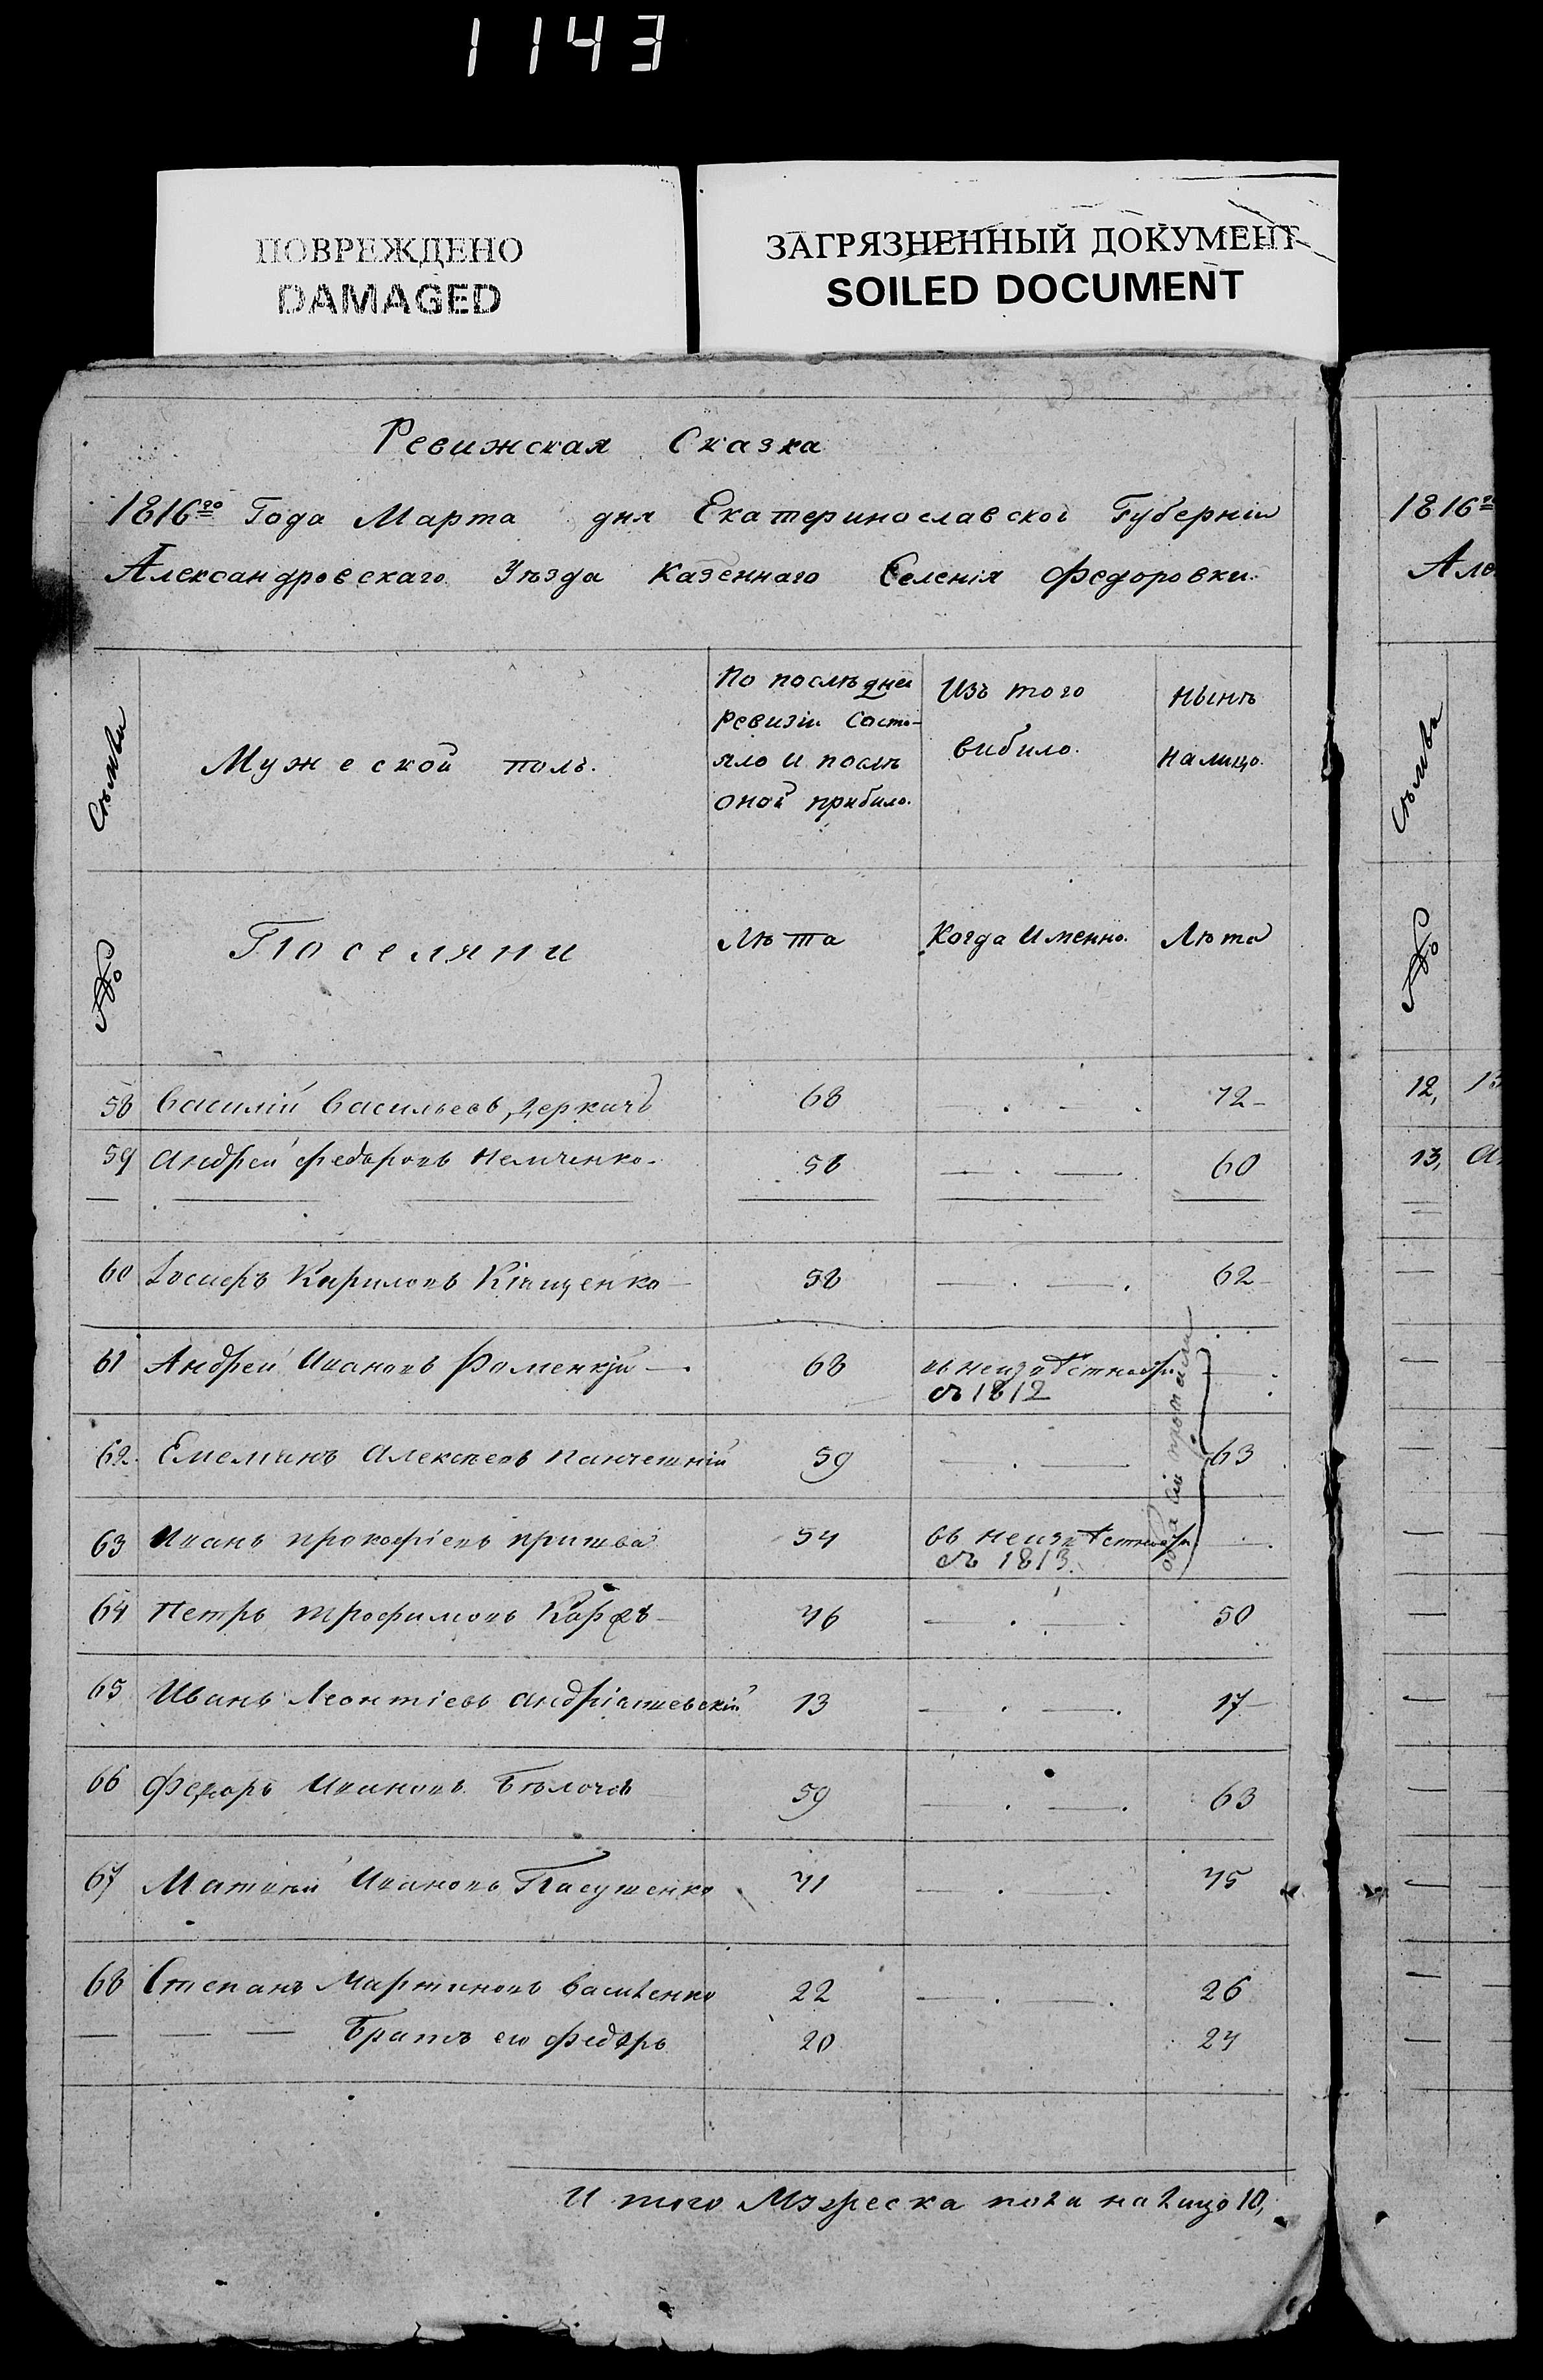 1143
ПОВРЕЖДЕНО
DAMAGED
ЗАГРЯЗНЕННЫЙ ДОКУМЕНТ
SOILED DOCUMENT
Ревижская Сказка
1816го Года Марта дня Екатеринославской Губерніи
Александровскаго Уѣзда Казеннаго Селенія Федоровки.
Мужеской полъ.
По послѣдней
ревизіи состо-
яло и послѣ
оной прибило.
Изъ того
вибило.
Нынѣ
налицо.
№
Поселяни
Лѣта
Когда именно.
Лѣта
58 Василій Васильевъ Деркачъ 68 72
59 Андрей Федоровъ Немченко 56 60
60 Іосифъ Кириловъ Кіященко 58 62
61 Андрей Ивановъ 68
съ 1812
62 Емелянъ Алексѣевъ 59 63
63 Иванъ Прокофіевъ 54 въ неизвѣстной
съ 1813.
64 Петръ Трофимовъ 46 50
65 Иванъ Леонтіевъ Андріяшевскій 13 17
66 Федоръ Ивановъ 59 63
67 Матвѣй Ивановъ 41 45
68 Степанъ Мартиновъ Василенко 22 26
Братъ его Федоръ 20 24
И того Мужеска пола на лицо 10,
1816
Але
№
12,
13,